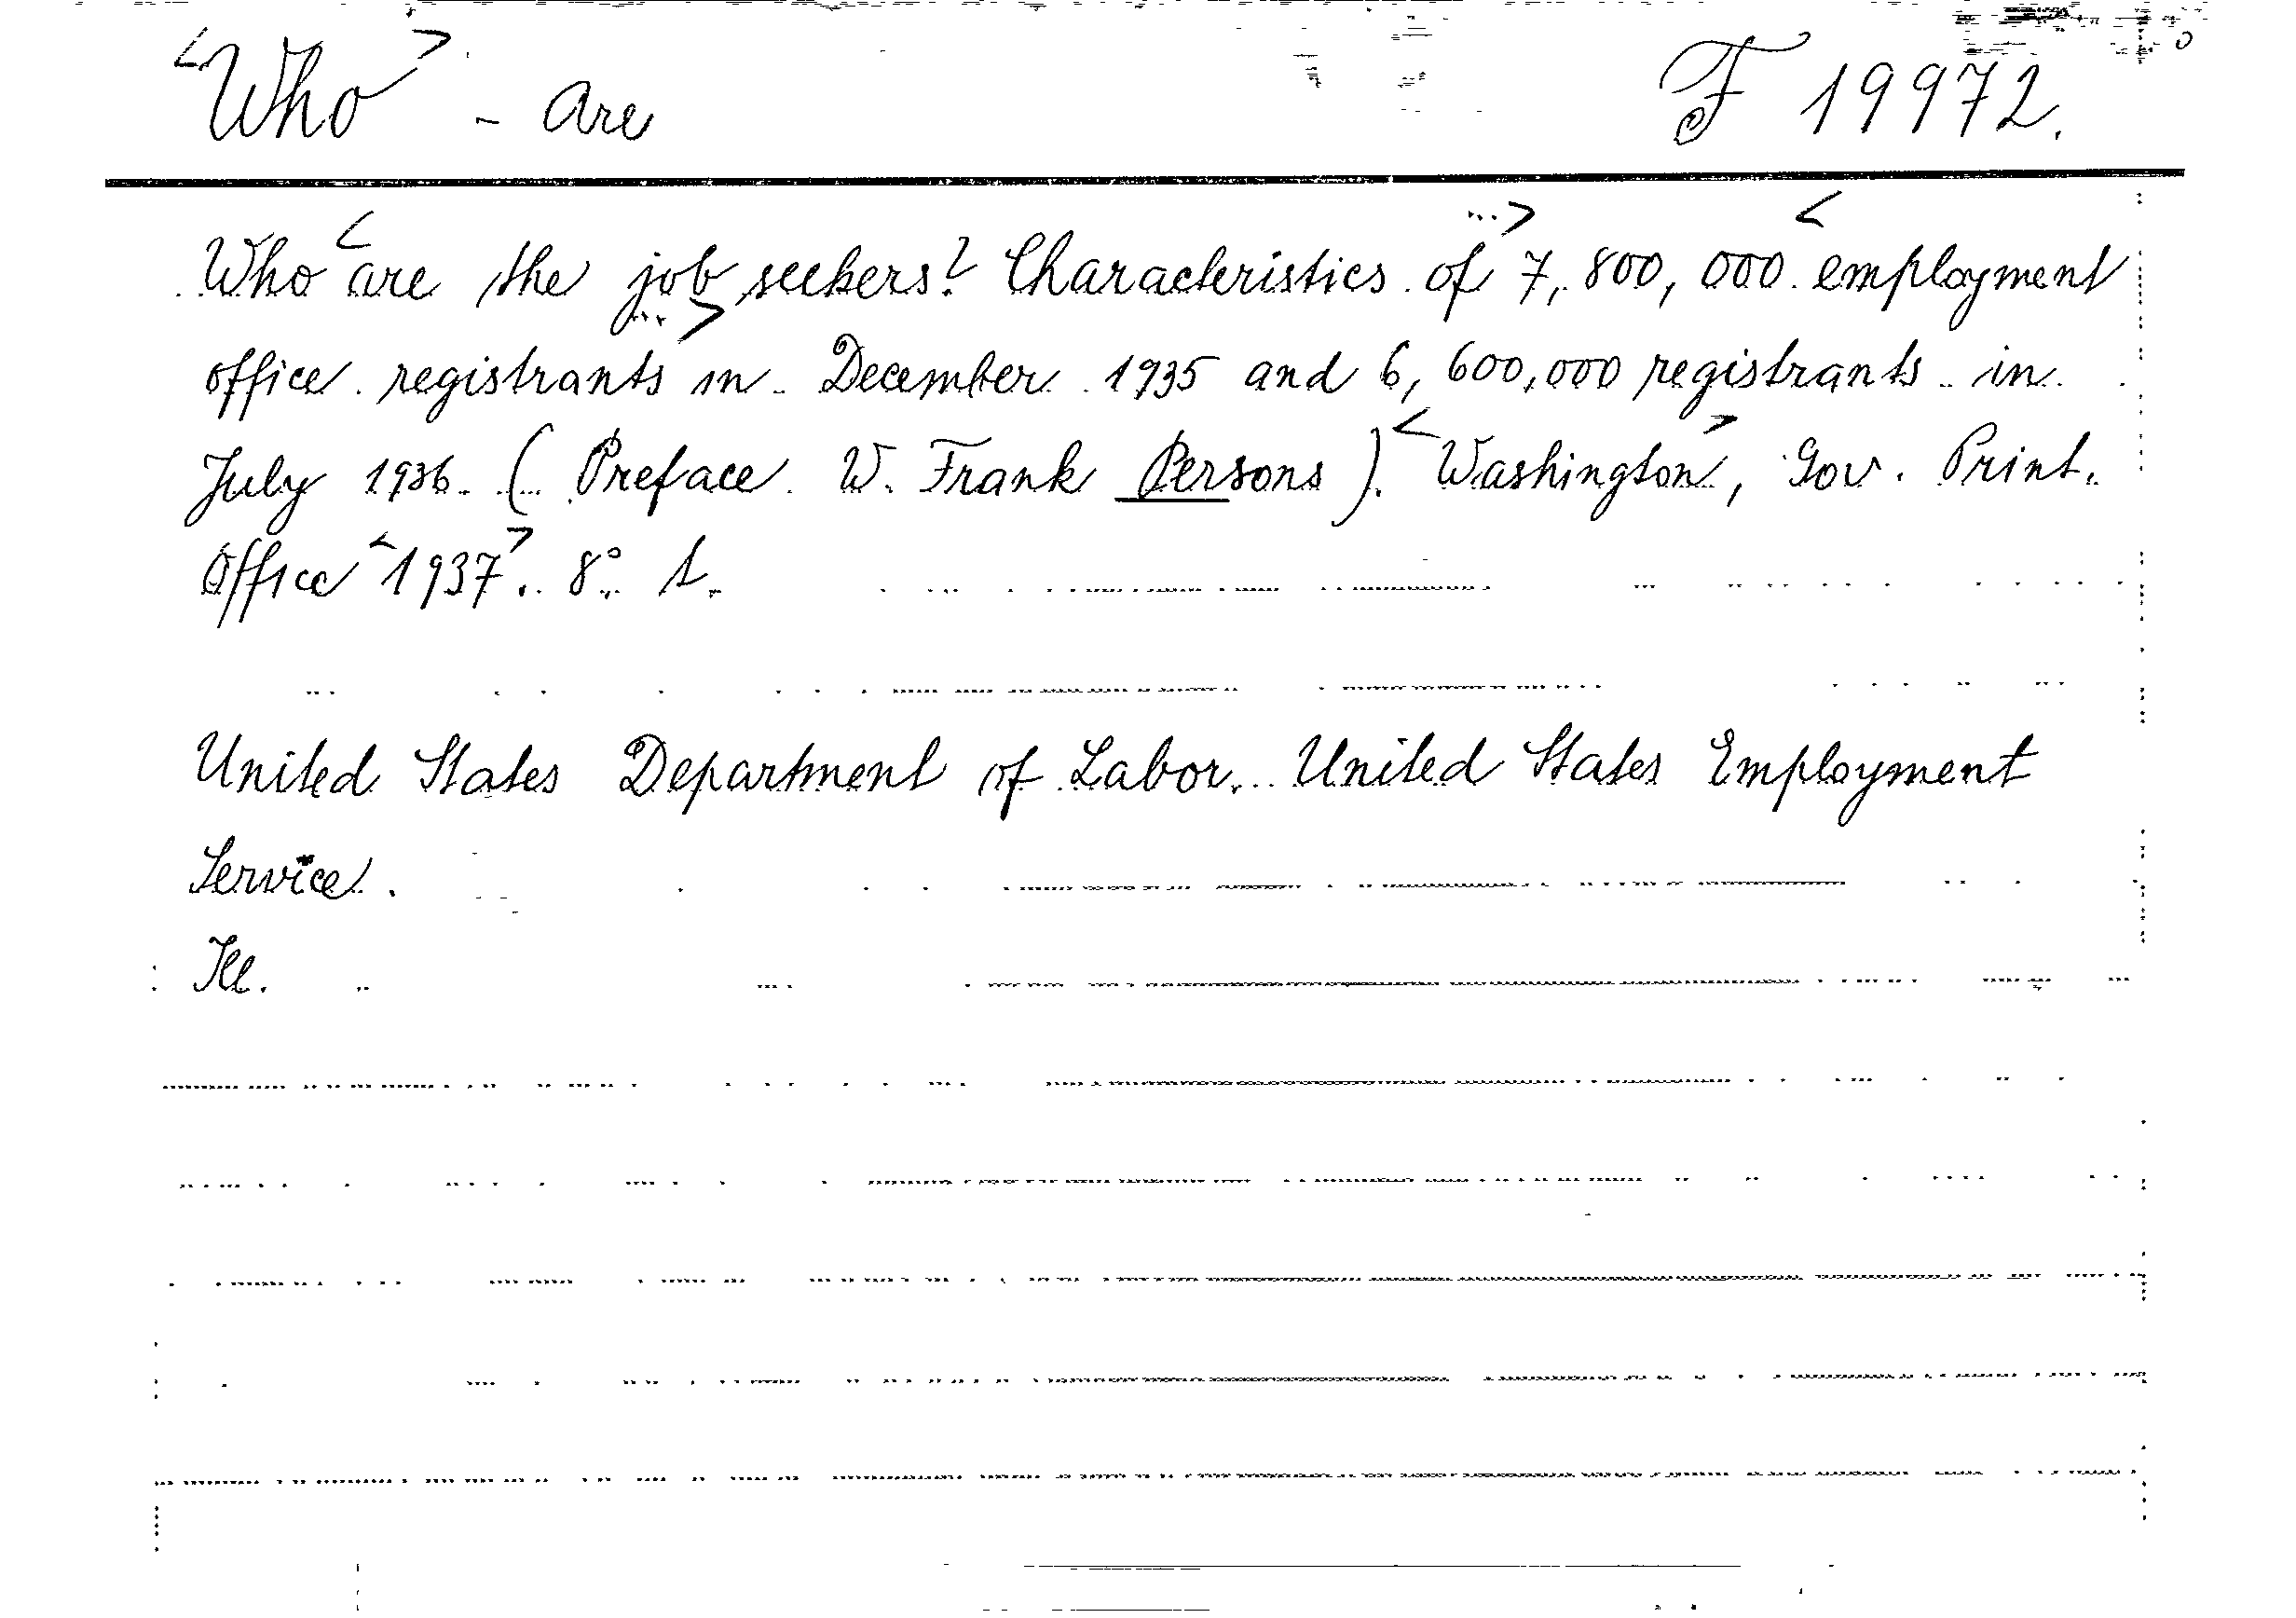 <Who> - are F 19972.
Who <are the job seekers? Characteristics of ...> 7,800,000 <employment
office registrants ...> in December 1935 and 6,600,000 registrants in
July 1936. (Preface W. Frank Persons). <Washington>, Gov. Print.
Office <1937>. 8° 1.
United States Department of Labor. United States Employment
Service.
Ill.